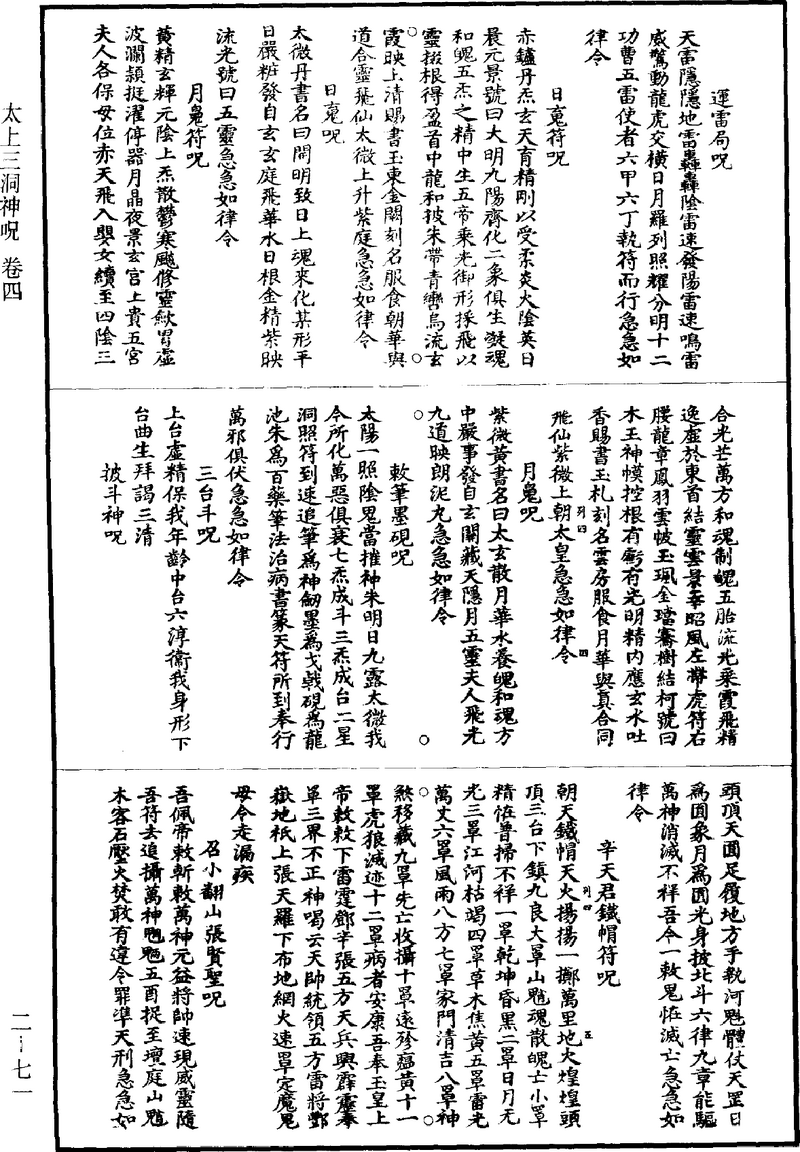 太上三洞神呪 卷四
二―七一
運雷局呪
天雷隱隱地雷轟轟陰雷速發陽雷速鳴雷
威驚動龍虎交橫日月羅列照耀分明十二
功曹五雷使者六甲六丁執符而行急急如
律令
日䰟符呪
赤鑪丹炁玄天育精剛以受柔炎火陰英日
晨元景號曰大明九陽齊化二象俱生凝魂
和魄五炁之精中生五帝乘光御形採飛以
靈掇根得盈首中龍和披朱帶青轡烏流玄
霞映上清賜書玉東金闕刻名服食朝華與
道合靈飛仙太微上升紫庭急急如律令
日䰟呪
太微丹書名曰開明致日上魂來化某形平
日嚴粧發自玄玄庭飛華水日根金精紫映
流光號曰五靈急急如律令
月䰟符呪
黃精玄輝元陰上炁散鬱寒飈修靈歘胃虛
波瀾頴挺濯停器月晶夜景玄宮上貴五宮
夫人各保母位赤天飛入嬰女續至四陰三
合光芒萬方和魂制魄五胎流光乘霞飛精
逸虛於東首結靈雲景辛昭風左帶虎符右
腰龍章鳳羽雲帔玉珮金璫騫樹結柯號曰
木王神幙控根有虧有光明精內應玄水吐
香賜書玉札刻名雲房服食月華與真合同
飛仙紫微上朝太皇急急如律令
月䰟呪
紫微黃書名曰太玄散月華水養魄和魂方
中嚴事發自玄關藏天隱月五靈夫人飛光
九道映朗泥九急急如律令
敕筆墨硯呪
太陽一照陰鬼當摧神朱明日九露太微我
今所化萬惡俱衰七炁成斗三炁成台二星
洞照符到速追筆為神劒墨為戈戟硯為龍
池朱為百藥筆法治病書篆天符所到奉行
萬邪俱伏急急如律令
三台斗呪
上台虛精保我年齡中台六淳衞我身形下
台曲生拜謁三清
披斗神呪
頭頂天圓足履地方手執河魁體仗天罡日
為圓象月為圓光身披北斗六律九章能驅
萬神消滅不祥吾今一敕鬼怪滅亡急急如
律令
辛天君鐵帽符呪
朝天鐵帽天火揚揚一擲萬里地火煌煌頭
頂三台下鎮九良大罩山魈魂散魄亡小罩
精怪普掃不祥一罩乾坤昏黑二罩日月无
光三罩江河枯竭四罩草木焦黃五罩雷光
萬丈六罩風雨八方七罩家門清吉八罩神
煞移藏九罩先亡收攝十罩遠殄瘟黃十一
罩虎狼滅迹十二罩病者安康吾奉玉皇上
帝敕敕下雷霆鄧辛張五方天兵興霹靂奉
罩三界不正神喝云天帥統領五方雷將酆
嶽地祇上張天羅下布地網火速罩定魔鬼
毋令走漏疾
召小翻山張賢聖呪
吾佩帝敕斬敕萬神元益將帥速現威靈隨
吾符去追攝萬神魍魎五酉捉至壇庭山魈
木客石壓火焚敢有違令罪準天刑急急如